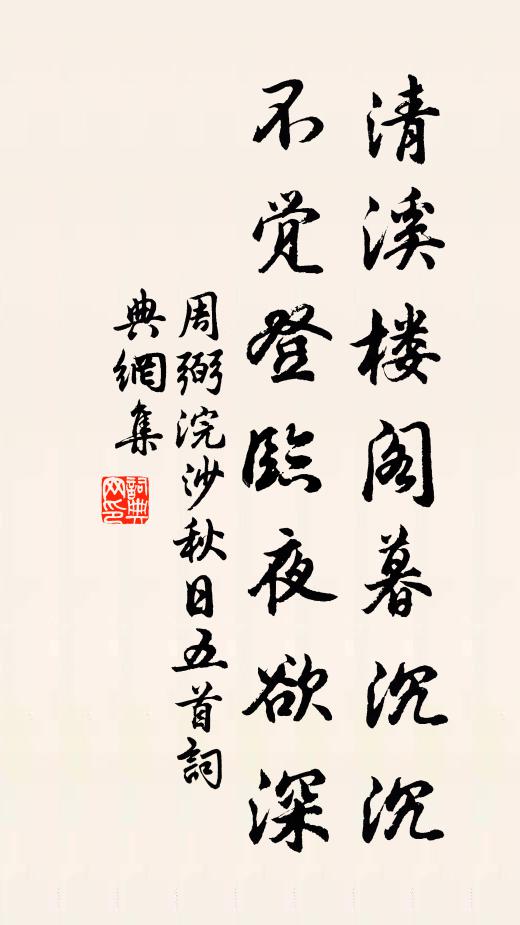 清溪楼阁暮沉沉
不觉登臨夜欲深
周弼浣沙秋日五首詞
典網集
詞典网印